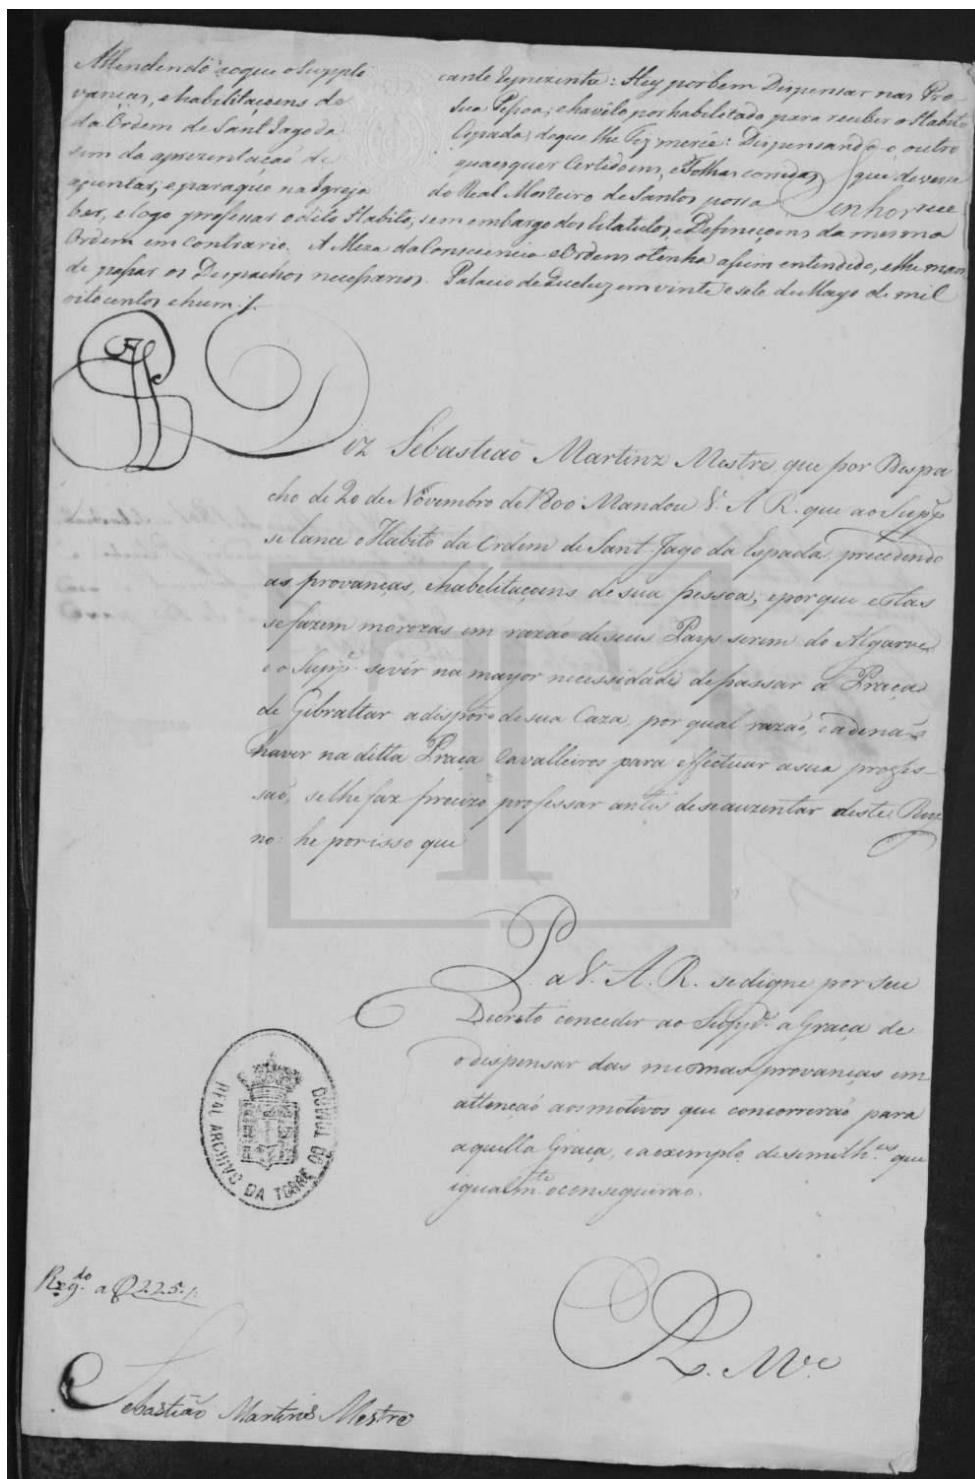 Attendendo aoque o Suppli cante Reprezenta: Hey por bem Dispensar nas Pro-
vanças, e habilitaçoens de sua Pessoa; e havêlo por habilitado para receber o Habito
da Ordem de Sant Iago da Espada, de que lhe Fiz mercê: Dispensando-o outro
sim da aprezentaçaõ de quaesquer Certidoens, e Folhas corridas, que devesse
ajuntar; e para que na Igreja do Real Mosteiro de Santos possa rece
Senhor
ber, e logo professar o dito Habito, sem embargo dos Estatutos, e Definiçoens da mesma
Ordem em contrario. A Meza da Consciencia e Ordens o tenha assim entendido, e lhe man
de passar os Despachos necessarios. Palacio de Queluz em vinte e sete de Mayo de mil
oito centos e hum
Diz Sebastiaõ Martinz Mestre que por Despa
cho de 20 de Novembro de 1800 Mandou V. A. R. que ao Supp.e
se lance o Habito da Ordem de Sant-Iago da Espada, precedendo
as provanças, e habelitaçoens de sua pessoa; e porque estas
se fazem morozas em razão de seus Pays serem do Algarve,
e o Supp.e se vir na mayor necessidade de passar á Praça
de Gibraltar a dispôr de sua Caza, por qual razão, e a de naõ
haver na ditta Praça Cavalleiros para effectuar a sua profis-
saõ, se lhe faz precizo professar antes de se auzentar deste Rey
no: he por isso que
P. a V. A. R. se digne por seu
Decreto conceder ao Supp.e a Graça de
o dispensar das mesmas provanças em
attençaõ aos motivos que concorreraõ para
aquella Graça, e a exemplo de semilh.es que
igualm.te o conseguiraõ.
REAL ARCHIVO DA TORRE DO TOMBO
Reg.do a f 225
E. R. M.ce
Sebastiaõ Martins Mestre